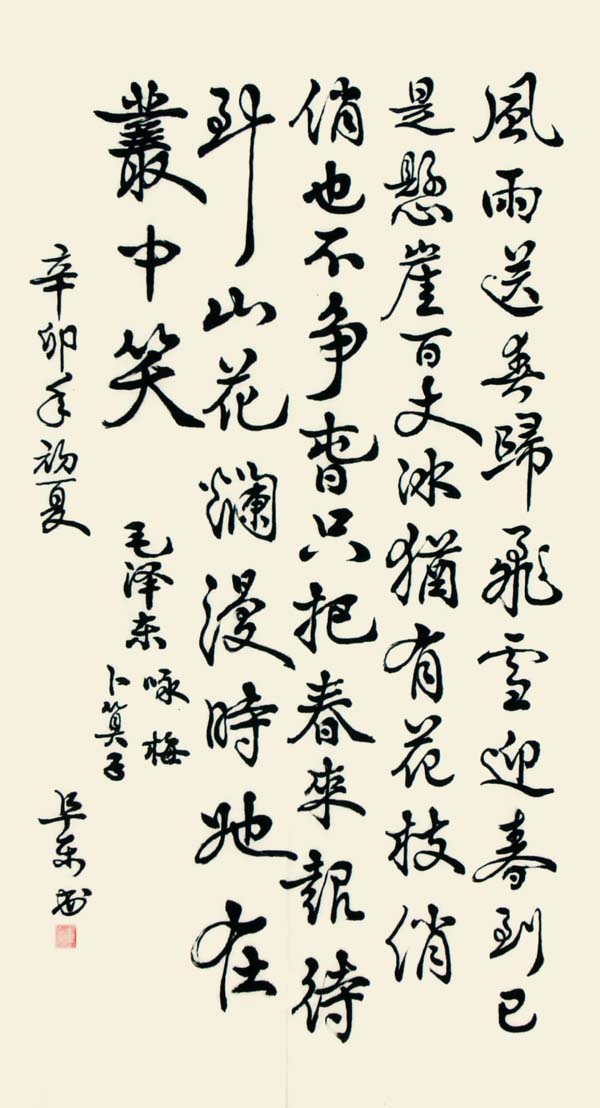 風雨送春歸飛雪迎春到已
是懸崖百丈冰猶有花枝俏
俏也不争旾只把春來報待
到山花爛漫時她在
叢中笑
毛泽东
咏梅
卜算子
辛卯年初夏